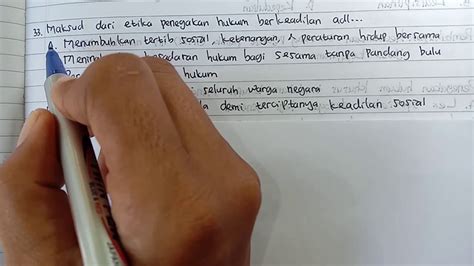 33. Maksud dari etika penegakan hukum berkeadilan adl...
a. Menumbuhkan tertib sosial, ketenangan, & peraturan hidup bersama
hukum bagi sesama tanpa Pandang bulu
hukum
seluruh warga negara
demi terciptanya keadilan sosial